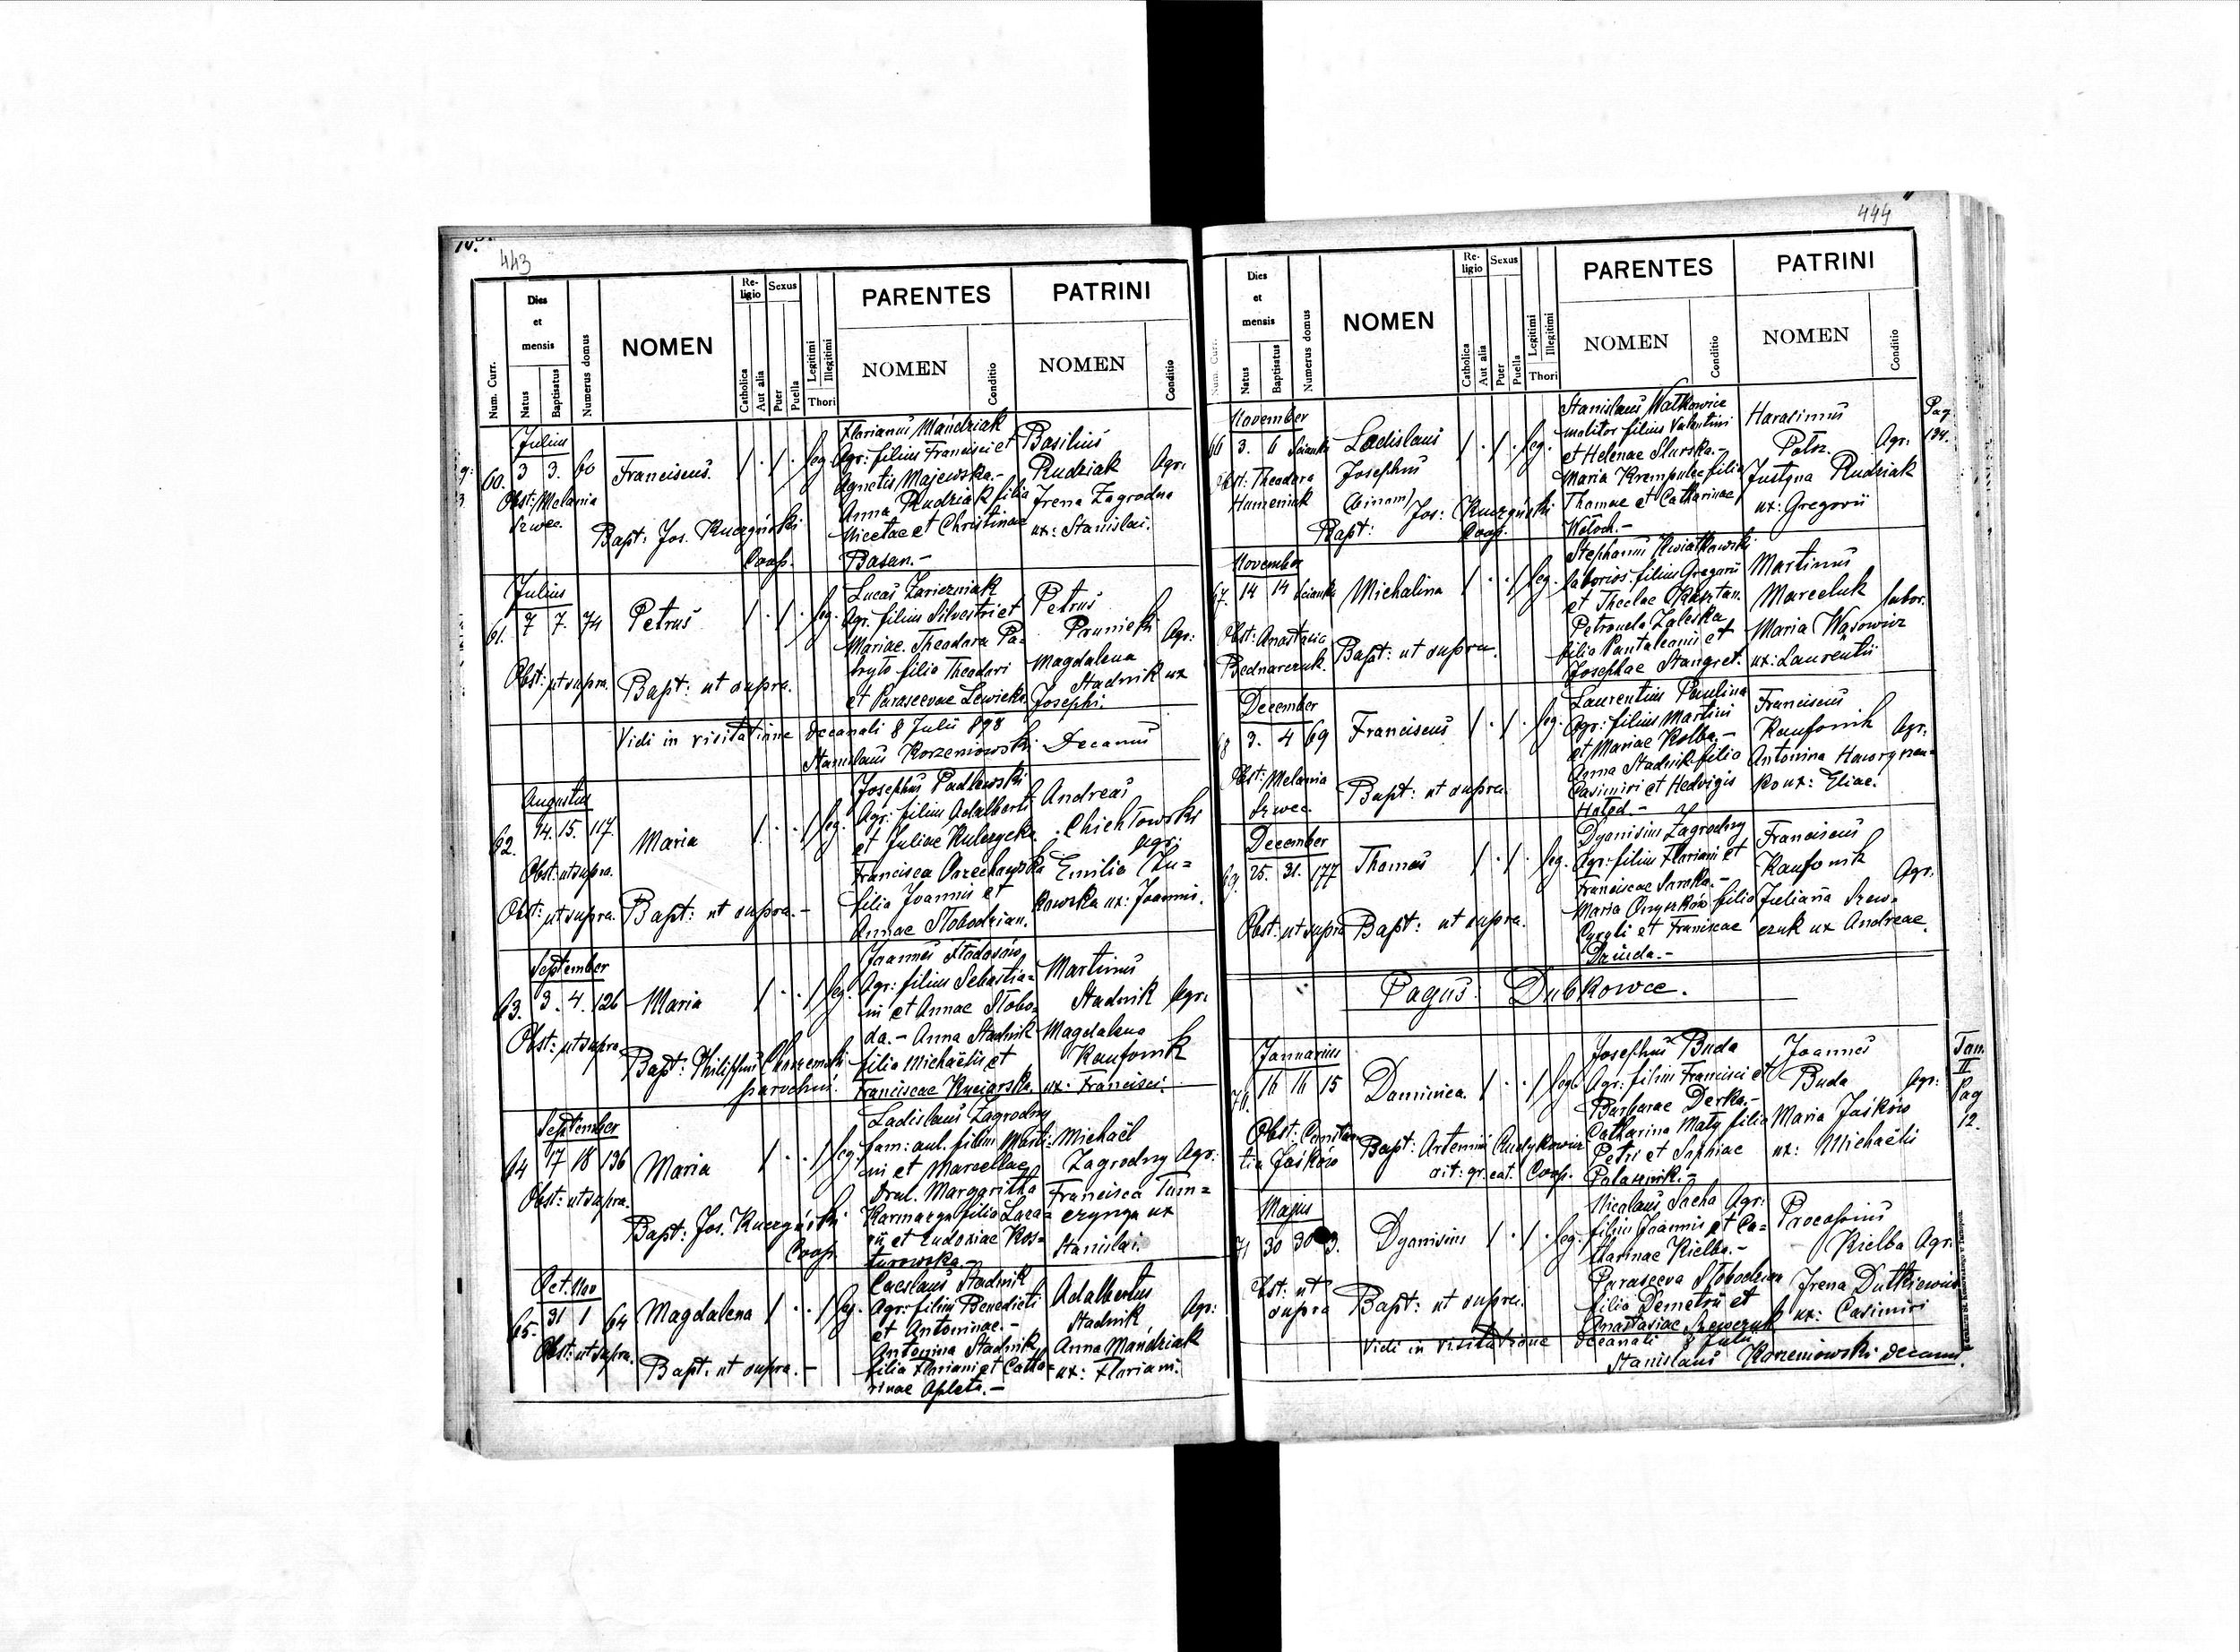 443
Num. Curr.
Dies et mensis
Natus
Baptisatus
Numerus domus
NOMEN
Religio
Catholica
Aut alia
Sexus
Puer
Puella
Legitimi
Illegitimi
Thori
PARENTES
NOMEN
Conditio
PATRINI
NOMEN
Conditio
Julius
60. 3 3. 60 Franciscus. leg.
Obst: Melania
Szwec.
Bapt: Jos. Kuczyński
Coop.
Florianus Mandziak
Agr: filius Francisci et
Agnetis Majewska.-
Anna Rudziak filia
Nicetae et Christinae
Basan.-
Basilius
Rudziak Agr.
Irena Zagrodna
ux: Stanislai.
Julius
61. 7 7. 74 Petrus leg.
Obst: ut supra. Bapt: ut supra.
Lucas
Agr. filius Silvestri et
Mariae. Theodora Pa-
tryło filia Theodori
et Parascevae Lewicka.
Petrus
Prunicki Agr:
Magdalena
Stadnik ux
Josephi.
Vidi in visitatione decanali 8 Julii 898
Stanislaus Korzeniowski Decanus
Augustus
62. 14. 15. 117. Maria leg.
Obst: ut supra.
Obst: ut supra. Bapt: ut supra.-
Josephus Padlewski
Agr: filius Adalberti
et Juliae Kulczycka.
Francisca
filia Joannis et
Annae Słobodzian.
Andreas
Chichłowski
agr:
Emilia Żu-
kowska ux: Joannis.
September
63. 3. 4. 126 Maria leg.
Obst: ut supra
Bapt: Philippus
parochus.
Joannes Stadosów
Agr: filius Sebastia-
ni et Annae Słobo-
da.- Anna Stadnik
filia Michaëlis et
Franciscae
Martinus
Stadnik Agr.
Magdalena
Kaufonik
ux: Francisci.
September
64 17 18 136 Maria leg.
Obst: ut supra.
Bapt: Jos. Kuczyński
Coop.
Ladislaus Zagrodny
fam: aul. filius Marti-
ni et Marcellae
Drul. Margaritha
Karmazyn filia Laza-
rii et Eudoxiae Kos-
turowska.-
Michaël
Zagrodny Agr:
Francisca Tum-
czynga ux
Stanislai.
Oct. Nov
65. 31 1 64 Magdalena leg.
Obst: ut supra.
Bapt: ut supra.-
Caeslaus Stadnik
Agr: filius Benedicti
et Antoninae.-
Antonina Stadnik
filia Floriani et Catha-
rinae Apleta.-
Adalbertus
Stadnik Agr:
Anna Mandziak
ux: Floriani.
444
Num. Curr.
Dies et mensis
Natus
Baptisatus
Numerus domus
NOMEN
Religio
Catholica
Aut alia
Sexus
Puer
Puella
Legitimi
Illegitimi
Thori
PARENTES
NOMEN
Conditio
PATRINI
NOMEN
Conditio
November
66 3. 6 Ladislaus leg.
Obst: Theodora
Humeniuk
Josephus
(binom)
Bapt: Jos: Kuczyński
Coop.
Stanislaus Watkowicz
molitor filius Valentini
et Helenae Slurska.-
Maria Krempulec filia
Thomae et Catharinae
Wołoch.-
Harasimus
Potoz. Agr:
Justyna Rudziak
ux: Gregorii
Pag
134.
November
67. 14 14 Michalina leg.
Obst: Anastasia
Bednarczuk. Bapt: ut supra.
Stephanus Kwiatkowski
laborios. filius Gregorii
et Theclae Okasztan.
Petronela Zaleska
filia Pantaleonis et
Josephae Stangret.
Martinus
Marceluk labor.
Maria Wąsowicz
ux: Laurentii
December
68 3. 4 69 Franciscus leg.
Obst: Melania
Szwec. Bapt: ut supra.
Laurentius Paulina
Agr: filius Martini
et Mariae Kolba.-
Anna Stadnik filia
Casimiri et Hedvigis
Hołod.-
Franciscus
Kaufonik Agr.
Antonina
ko ux: Eliae.
December
69. 25. 31. 177 Thomas leg.
Obst: ut supra Bapt: ut supra.
Dyonisius Zagrodny
Agr: filius Floriani et
Franciscae Sarnka.-
Maria Onyszków filia
Cyryli et Franiscae
Dziuda.-
Franciscus
Kaufonik Agr.
Juliana Szew-
czuk ux Andreae.
Pagus: Dubkowce.
Januarius
70. 16 16 15 Dominica. leg.
Obst: Constan-
tia Jaśków Bapt: Artemius
rit: gr. cat. Coop.
Josephus Buda
Agr: filius Francisci et
Barbarae Derka.-
Catharina Mały filia
Petri et Sophiae
Palasznik.-
Joannes
Buda Agr:
Maria Jaśków
ux: Michaëlis
Tom.
II
Pag
12.
Majus
71 30 30 3. Dyonisius leg.
Obst: ut
supra Bapt: ut supra.
Nicolaus Sacha Agr:
filius Joannis et Ca-
tharinae Kielba.-
Parasceva Słobodzian
filia Demetrii et
Anastasiae Szewczuk
Procopius
Kielba Agr.
Irena Dutkiewicz
ux: Casimiri
Vidi in visitatione decanali 8 Julii
Stanislaus Korzeniowski decanus.